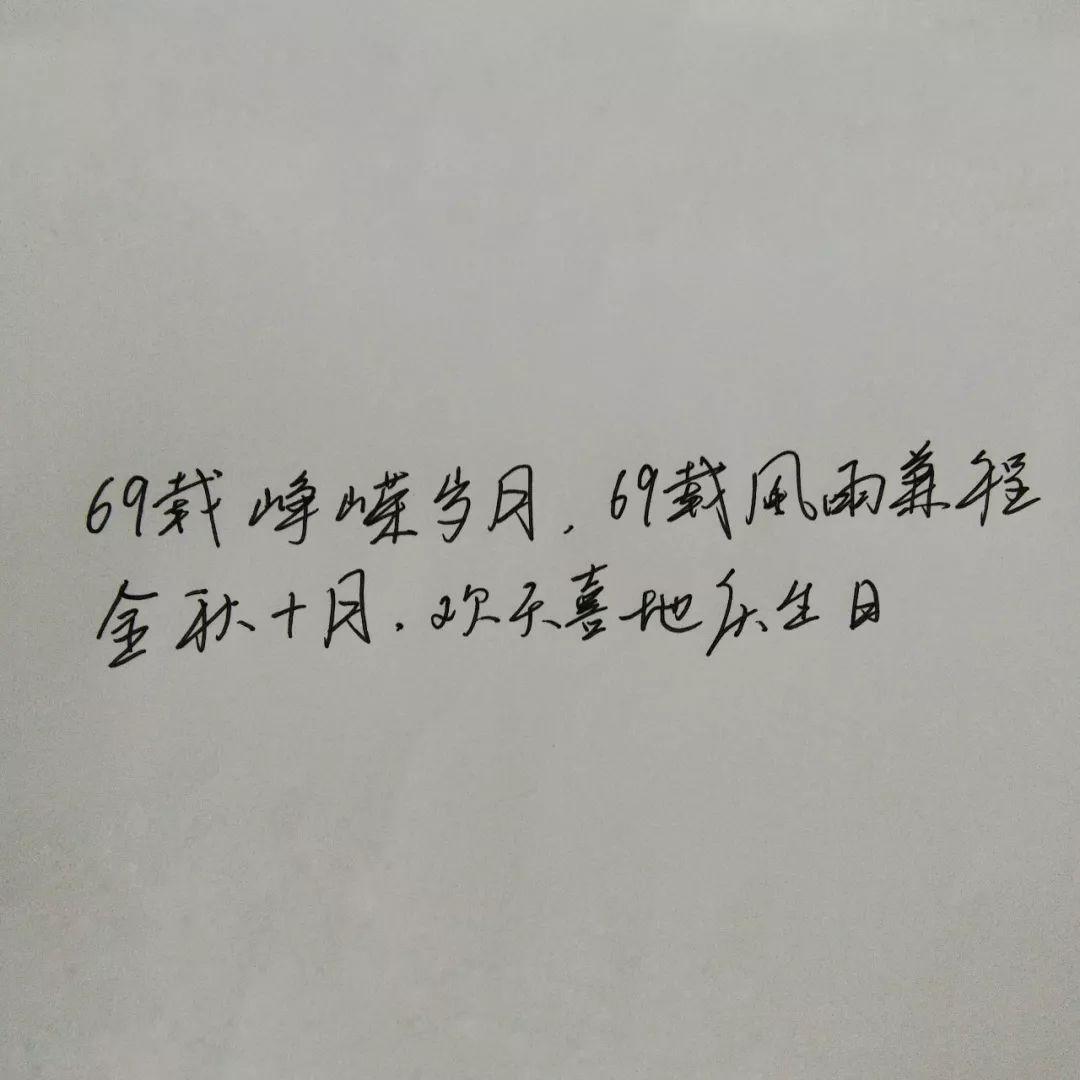 69载峥嵘岁月，69载風雨兼程
金秋十月，欢天喜地庆生日